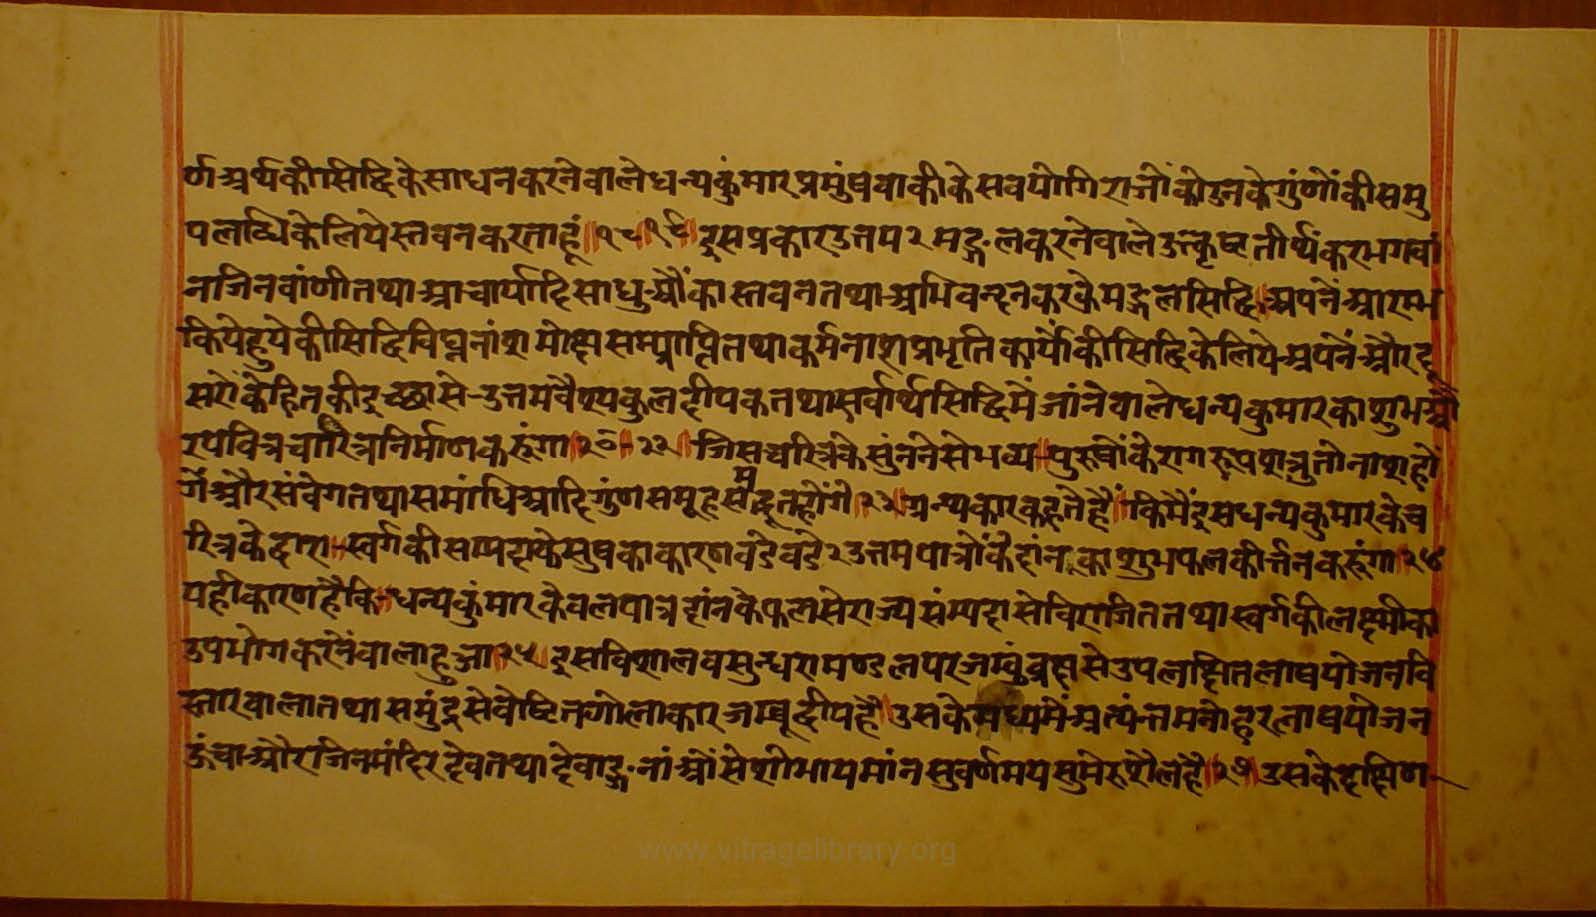 र्ण अर्थकी सिद्धि के साधन करनेवाले धन्यकुंमार प्रमुंष वाकीके सवयोगिराजोंको उनके गुंणोंकी समु
पलब्धि के लिये स्तवन करता हूं ॥१८।१९॥ इस प्रकार उत्तम २ मङ्गल करनेवाले उत्कृष्ट तीर्थंकर भगवां
न जिनवांणी तथा आचार्यादि साधुओंका स्तवन तथा अभिवन्दन करके मङ्गलसिद्धि। अपनें आरम्भ
किये हुये की सिद्धि विघ्ननांश मोक्ष सम्प्राप्ति तथा कर्मनाश प्रभृति कार्योंकी सिद्धि के लिये अपनें और दू
सरोंके हितकी इच्छासे उत्तम वैश्यकुलदीपक तथा सर्वार्थसिद्धि में जांनेवाले धन्यकुमारका शुभ औ
र पवित्र चारित्र निर्माण करुंगा॥२०-२२॥ जिस चरित्रके सुंननेसे भव्य पुरुषोंके रागरूप शत्रु तो नाश हों
गें और संवेग तथा समांधि आदि गुंण समूह समुद्भूत होंगे॥२३॥ ग्रन्थकार कहते हैं॥ कि मैं इस धन्यकुमारके च
रित्रके द्वारा स्वर्गकी सम्पदाके सुषका कारण वडे वडे २ उत्तम पात्रोंके दांनका शुभफल कीर्त्तन करुंगा॥२४
यही कारण है कि धन्यकुंमार केवल पात्रदांनके फलसे राज्य संम्पदासे विराजित तथा स्वर्गकी लक्ष्मीका
उपभोग करनेंवाला हुआ॥२५॥ इस विशाल वसुन्धरामण्डल पर जम्वुवृक्षसे उपलक्षित लाषयोजन वि
स्तारवाला तथा समुंद्रसे वेष्टित गोलाकार जम्बूद्वीप है। उसके मध्यमें अत्यंन्त मनोहर लाषयोजन
ऊंचा और जिनमंदिर देव तथा देवाङ्गनांओंसे शोभायमांन सुवर्णमय सुमेरु शैल है॥२७॥ उसके दक्षिण
www.vitragelibrary.org